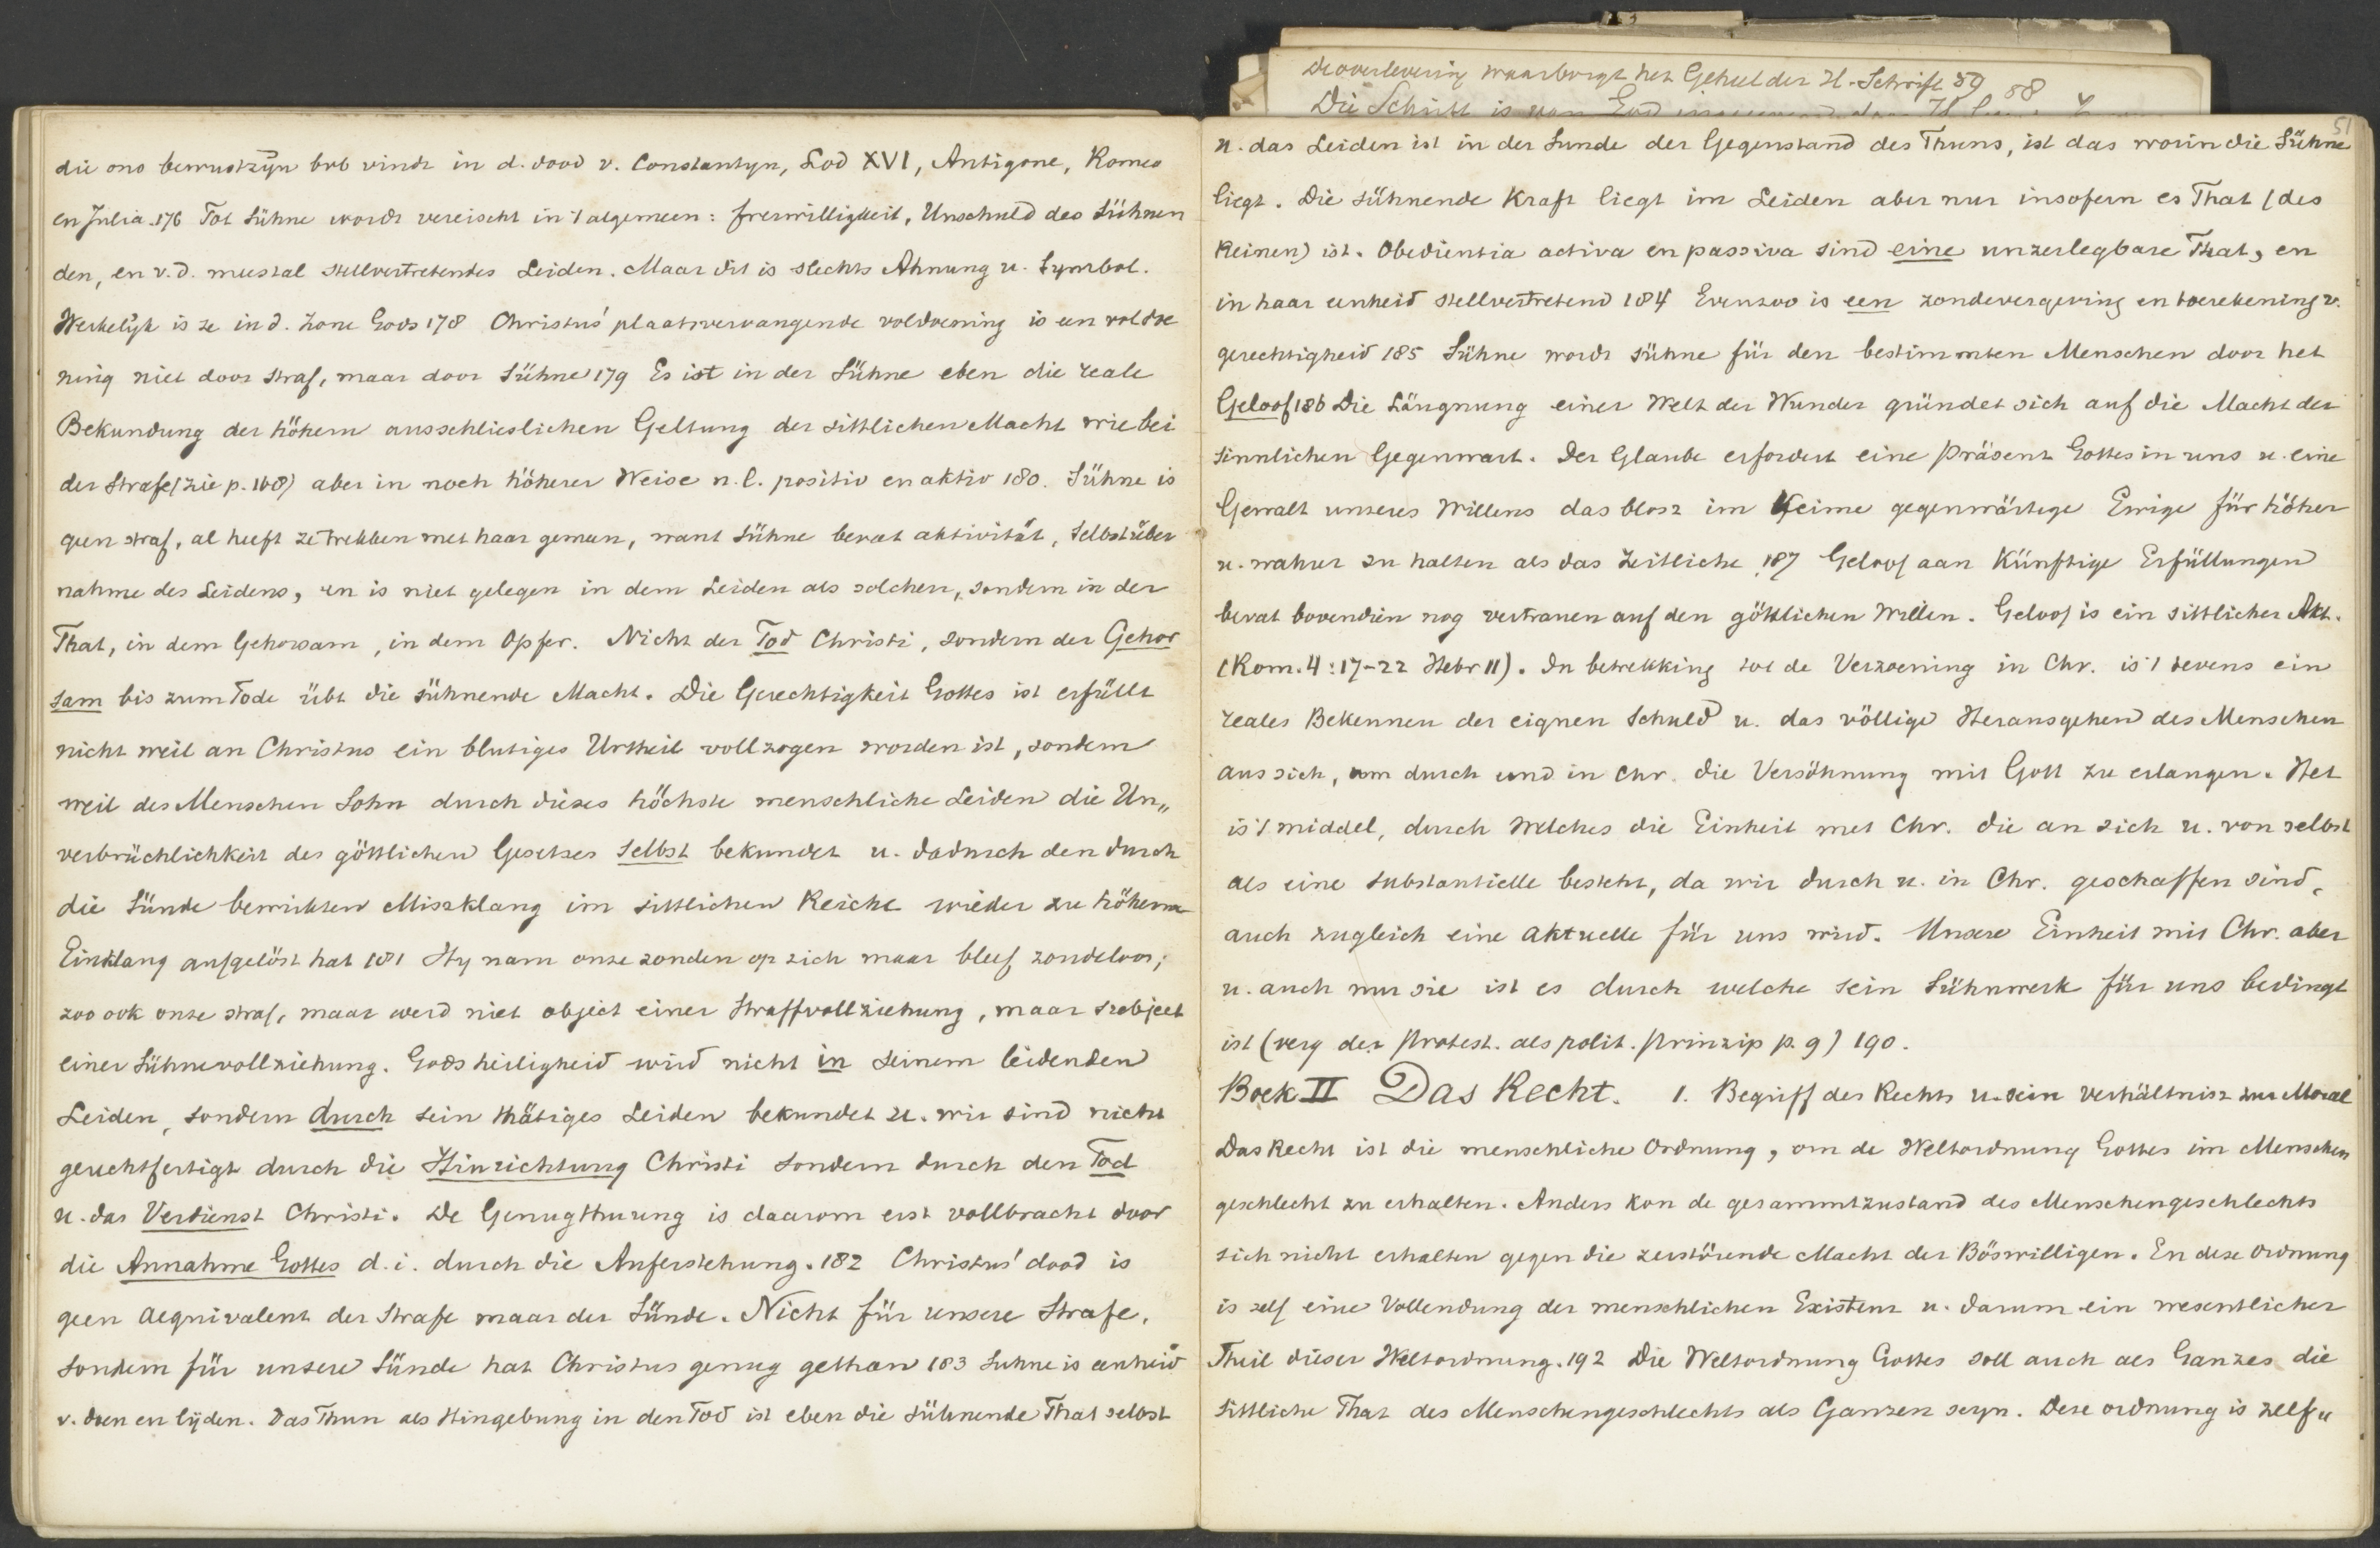 die ons bewustzijn bvb vindt in d. dood v. Constantyn, Lod XVI, Antigone, Romeo
en Julia. 176 Tot Sühne wordt vereischt in 't algemeen: freiwilligkeit, Unschuld des Sühnen
den, en v. d. meestal stellvertretendes Leiden. Maar dit is slechts Ahnung u. Symbol.
Werkelijk is ze in d. Zone Gods 178 Christus' plaatsvervangende voldoening is een voldoe
ning niet door straf, maar door Sühne 179 Es ist in der Sühne eben die reale
Bekundung der höhern ausschlieslichen Geltung der sittlichen Macht wie bei
der Strafe (zie p. 168) aber in noch höherer Weise n.l. positiv en aktiv 180. Sühne is
geen straf, al heeft ze trekken met haar gemeen, want Sühne bevat aktivität, Selbstüber
nahme des Leidens, en is niet gelegen in dem Leiden als solchen, sondern in der
That, in dem Gehorsam, in dem Opfer. Nicht der Tod Christi, sondern der Gehor
sam bis zum Tode übt die sühnende Macht. Die Gerechtigkeit Gottes ist erfüllt
nicht weil an Christus ein blutiges Urtheil vollzogen worden ist, sondern
weil des Menschen Sohn durch dieses höchste menschliche Leiden die Un„
verbrüchlichkeit des göttlichen Gesetzes selbst bekundet u. dadurch den durch
die Sünde bewirkten Missklang im sittlichen Reiche wieder zu höherm
Einklang aufgelöst hat 181 Hy nam onze zonden op zich maar bleef zondeloos;
zoo ook onze straf, maar werd niet object einer Straffvollziehung, maar subject
einer Sühnevollziehung. Gods heiligheid wird nicht in seinem leidenden
Leiden, sondern durch sein thätiges Leiden bekundet u. wir sind nicht
gerechtfertigt durch die Hinrichtung Christi sondern durch den Tod
u. das Verdienst Christi. De Genugthuung is daarom erst vollbracht door
die Annahme Gottes d. i. durch die Auferstehung. 182 Christus' dood is
geen Aequivalent der Strafe maar der Sünde. Nicht für unsere Strafe,
sondern für unsere Sünde hat Christus genug gethan 183 Suhne is eenheid
v. doen en lijden. Das Thun als Hingebung in den Tod ist eben die sühnende That selbst
de overlevering waarborgt het Geheel der H. Schrift 59 58
Die Schrift is van God
51
u. das Leiden ist in der Sunde der Gegenstand des Thuns, ist das worin die Sühne
liegt. Die sühnende Kraft liegt im Leiden aber nur insofern es That (des
Reinen) ist. Obedientia activa en passiva sind eine unzerlegbare That, en
in haar eenheid stellvertretend 184 Evenzoo is een zondevergeving en toerekening v.
gerechtigheid 185 Sühne wordt sühne für den bestimmten Menschen door het
Geloof 186 Die Längnung einer Welt der Wunder gründet sich auf die Macht der
sinnlichen Gegenwart. Der Glaube erfordert eine Präsenz Gottes in uns u. eine
Gewalt unseres Willens das blosz im Keime gegenwärtege Ewige für höher
u. wahrer zu halten als das Zeitliche 187 Geloof aan Künftige Erfüllungen
bevat bovendien nog vertrauen auf den göttlichen Willen. Geloof is ein sittlicher Akt.
(Rom. 4:17-22 Hebr 11). In betrekking tot de Verzoening in Chr. is 't tevens ein
reales Bekennen der eignen Schuld u. das völlige Herausgehen des Menschen
aus sich, um durch und in Chr. die Versöhnung mit Gott zu erlangen. Het
is 't middel, durch welches die Einheit met Chr. die an sich u. von selbst
als eine substantielle besteht, da wir durch u. in Chr. geschaffen sind,
auch zugleich eine aktuelle für uns wird. Unsere Einheit mit Chr. aber
u. auch nur sie ist es durch welche sein Sühnwerk für uns bedingt
ist (verg der Protest. als polit. Prinzip p. 9) 190.
Boek II Das Recht. 1. Begriff des Rechts u. sein Verhältnisz zur Moral
Das Recht ist die menschliche Ordnung, om de Weltordnung Gottes im Menschen
geschlecht zu erhalten. Anders kon de gesammtzustand des Menschengeschlechts
sich nicht erhalten gegen die zerstörende Macht der Böswilligen. En deze Ordnung
is zelf eine Vollendung der menschlichen Existenz u. darum ein wesentlicher
Theil dieser Weltordnung. 192 Die Weltordnung Gottes soll auch als Ganzes die
sittliche That des Menschengeschlechts als Ganzen seyn. Deze ordnung is zelf„